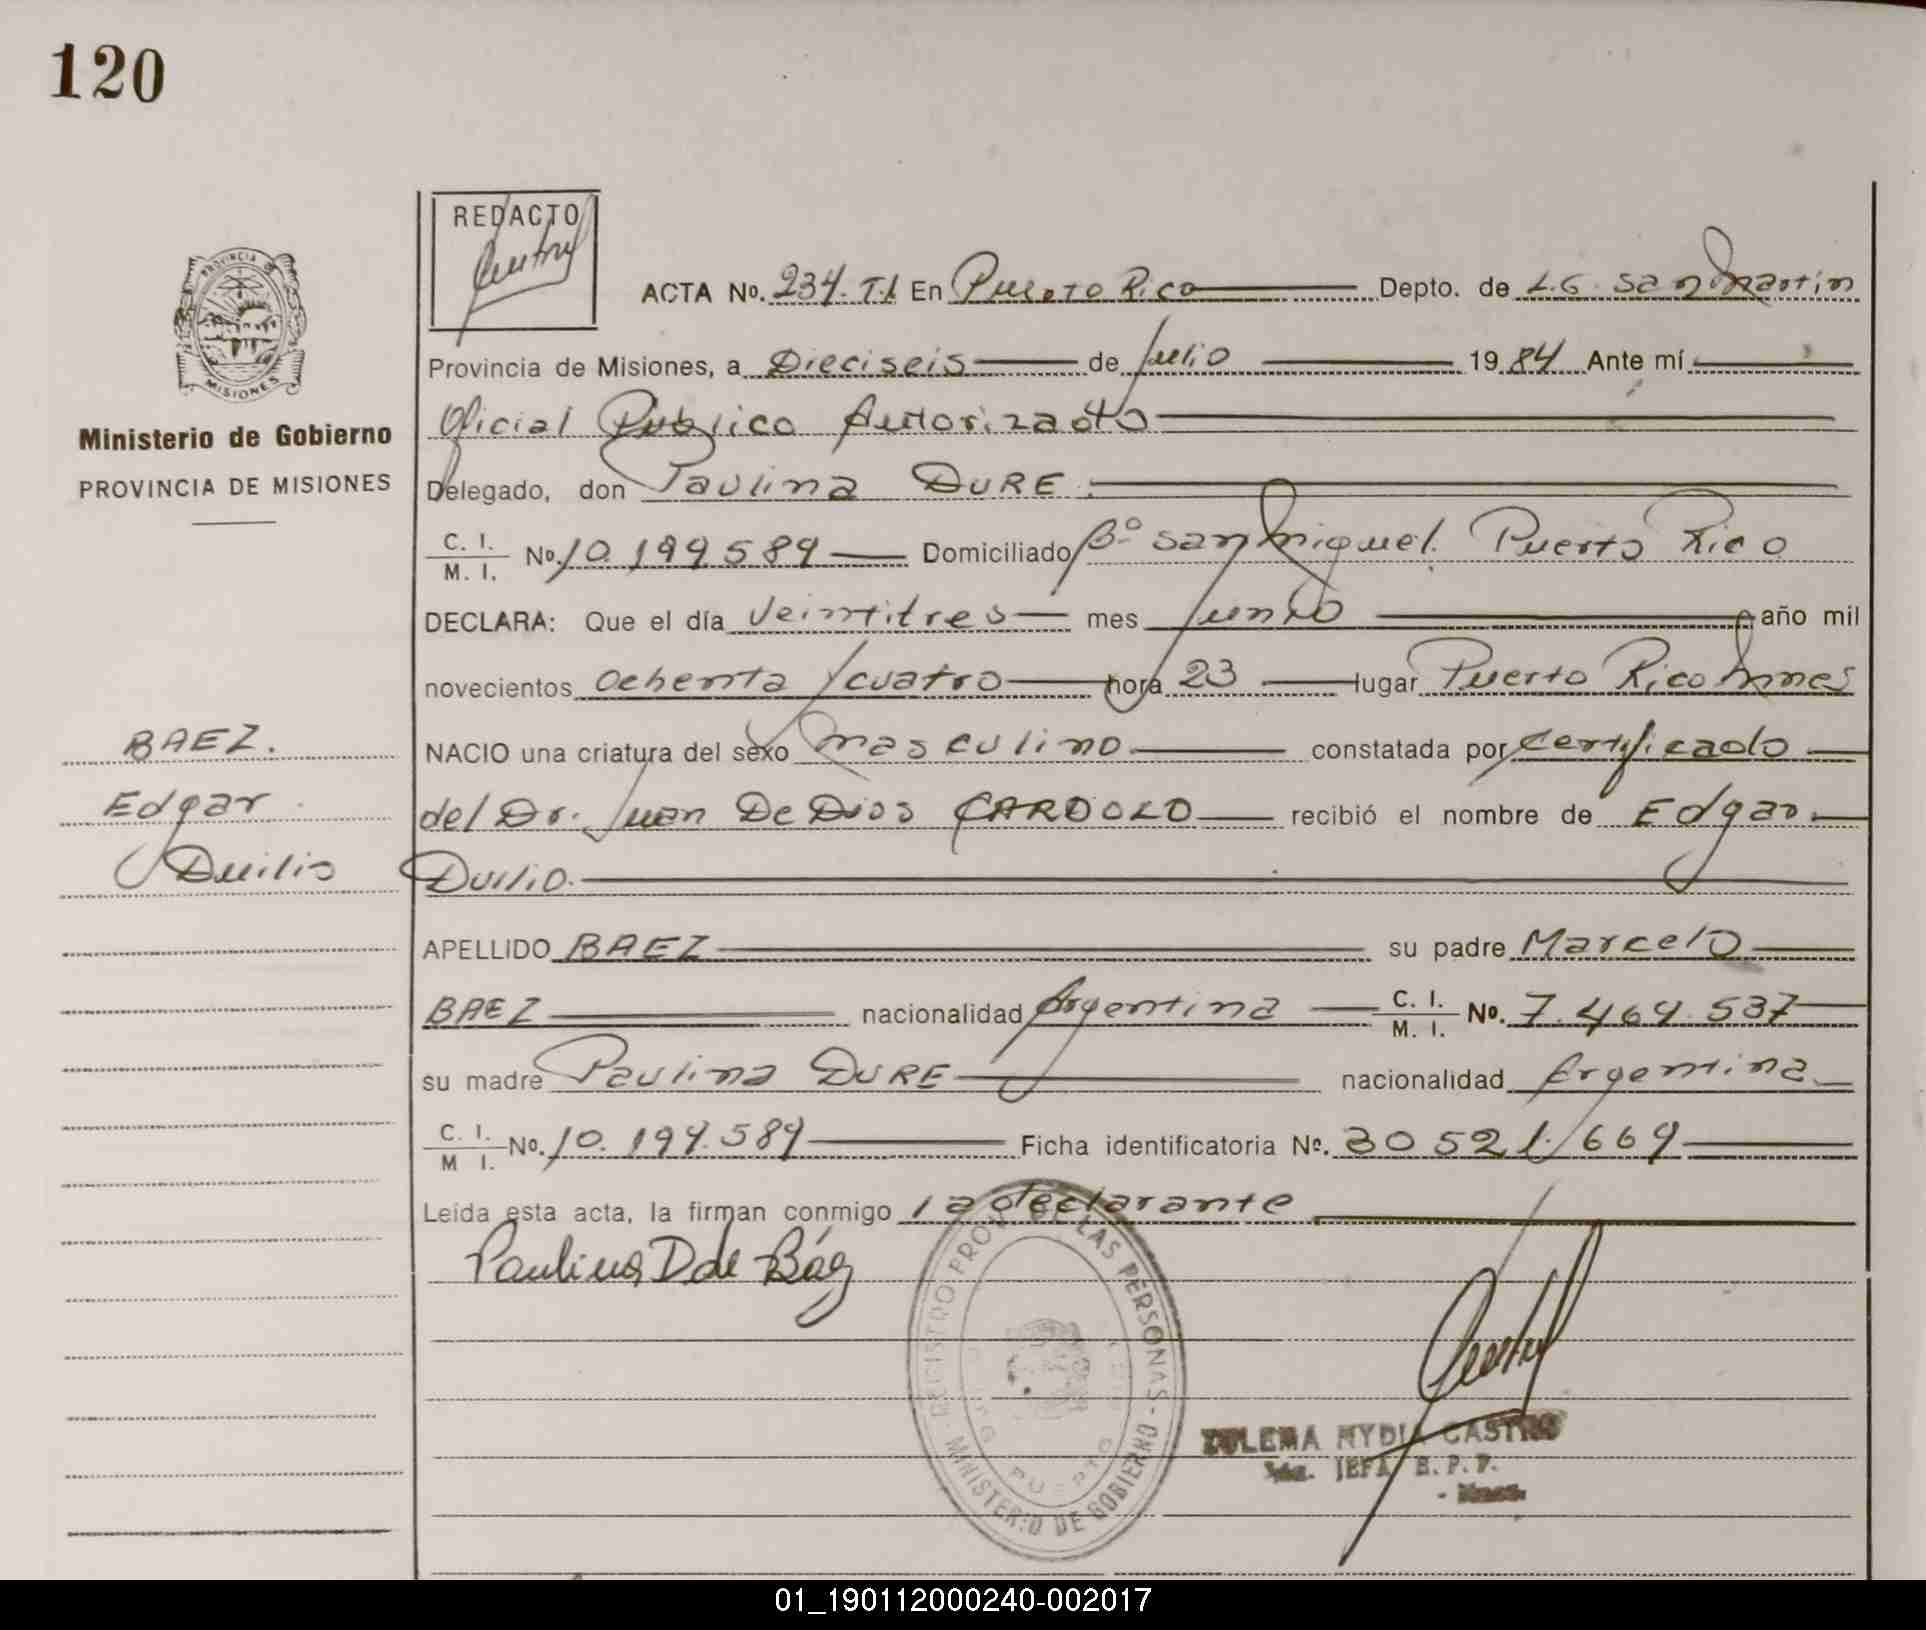 120
REDACTO
ACTA No. 234. T.I. En Puerto Rico Depto. de L.G. San Martín
PROVINCIA DE
MISIONES
Provincia de Misiones, a Dieciseis de Julio 1984 Ante mí
Ministerio de Gobierno
Oficial Publico Autorizado
PROVINCIA DE MISIONES
Delegado, don Paulina DURE.
C. I.
M. I. No. 10.194.584 Domiciliado Bº San Miguel. Puerto Rico
DECLARA: Que el día Veintitres mes Junio año mil
novecientos ochenta y cuatro hora 23 lugar Puerto Rico Mnes
BAEZ.
NACIO una criatura del sexo masculino constatada por certificado
Edgar
del Dr. Juan De Dios CARDOZO recibió el nombre de Edgar
Duilio
Duilio.
APELLIDO BAEZ su padre Marcelo
BAEZ nacionalidad Argentina C. I.
M. I. No. 7.464.537
su madre Paulina DURE nacionalidad Argentina
C. I.
M I. No. 10.194.584 Ficha identificatoria Nº. 30521.664
Leída esta acta, la firman conmigo la declarante
Paulina D de Báez
REGISTRO PROV. DE LAS PERSONAS - MINISTERIO DE GOBIERNO -
PUERTO
ZULEMA NYDIA CASTRO
JEFA R. P. P.
- Mnes.
01_190112000240-002017